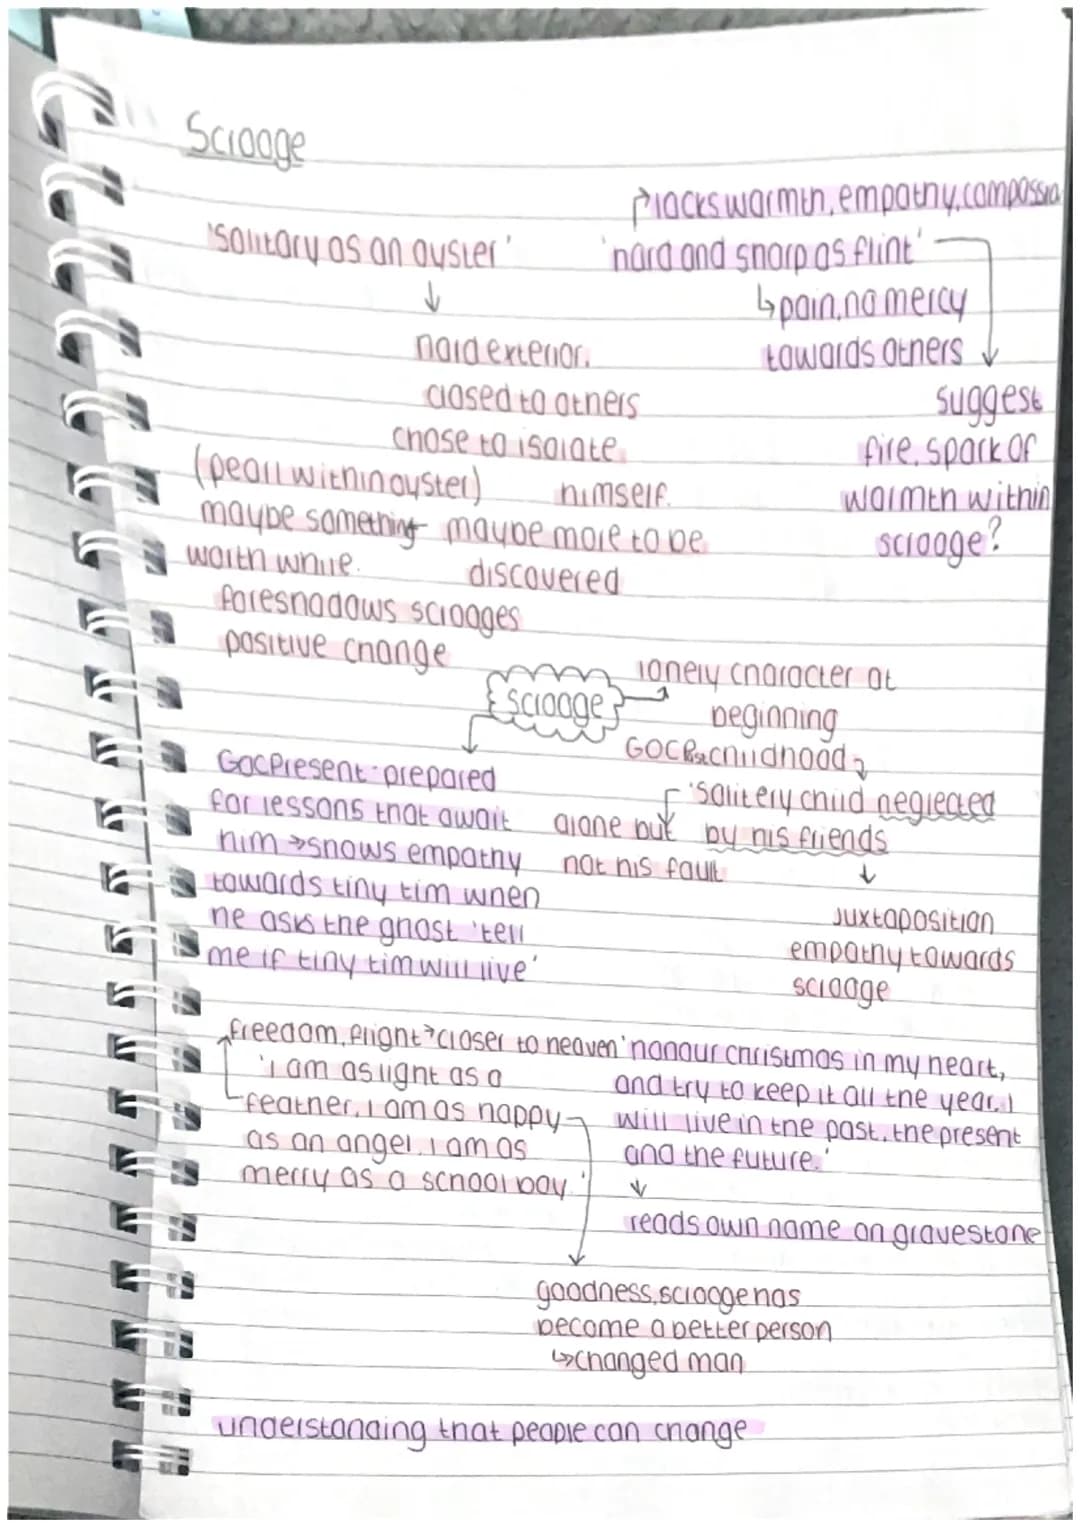 Scrooge
lacks warmth, empathy, compassio
'solitary as an oyster'
'hard and sharp as flint'
↓
↳pain, no mercy
towards others
hard exterior.
closed to others
chose to isolate
himself.
suggest
fire, spark of
warmth within
scrooge?
(pearl within oyster)
maybe something
worth while.
maybe more to be
discovered
foresnadows scrooges
positive change
scrooge
lonely character at
beginning
GOCPast childhood
'solitery child neglected
by his friends
alone but
not his fault
↓
Juxtaposition
empathy towards
scrooge
GocPresent - prepared
for lessons that await
him → shows empathy
towards tiny tim when
he asks the ghost 'tell
me if tiny tim will live'
freedom, flight → closer to heaven
'I am as light as a
feather, I am as happy
as an angel, I am as
merry as a school boy.'
'honour christmas in my heart,
and try to keep it all the year. I
will live in the past, the present
and the future.'
↓
reads own name on gravestone
goodness, scrooge has
become a better person
↳changed man
understanding that people can change